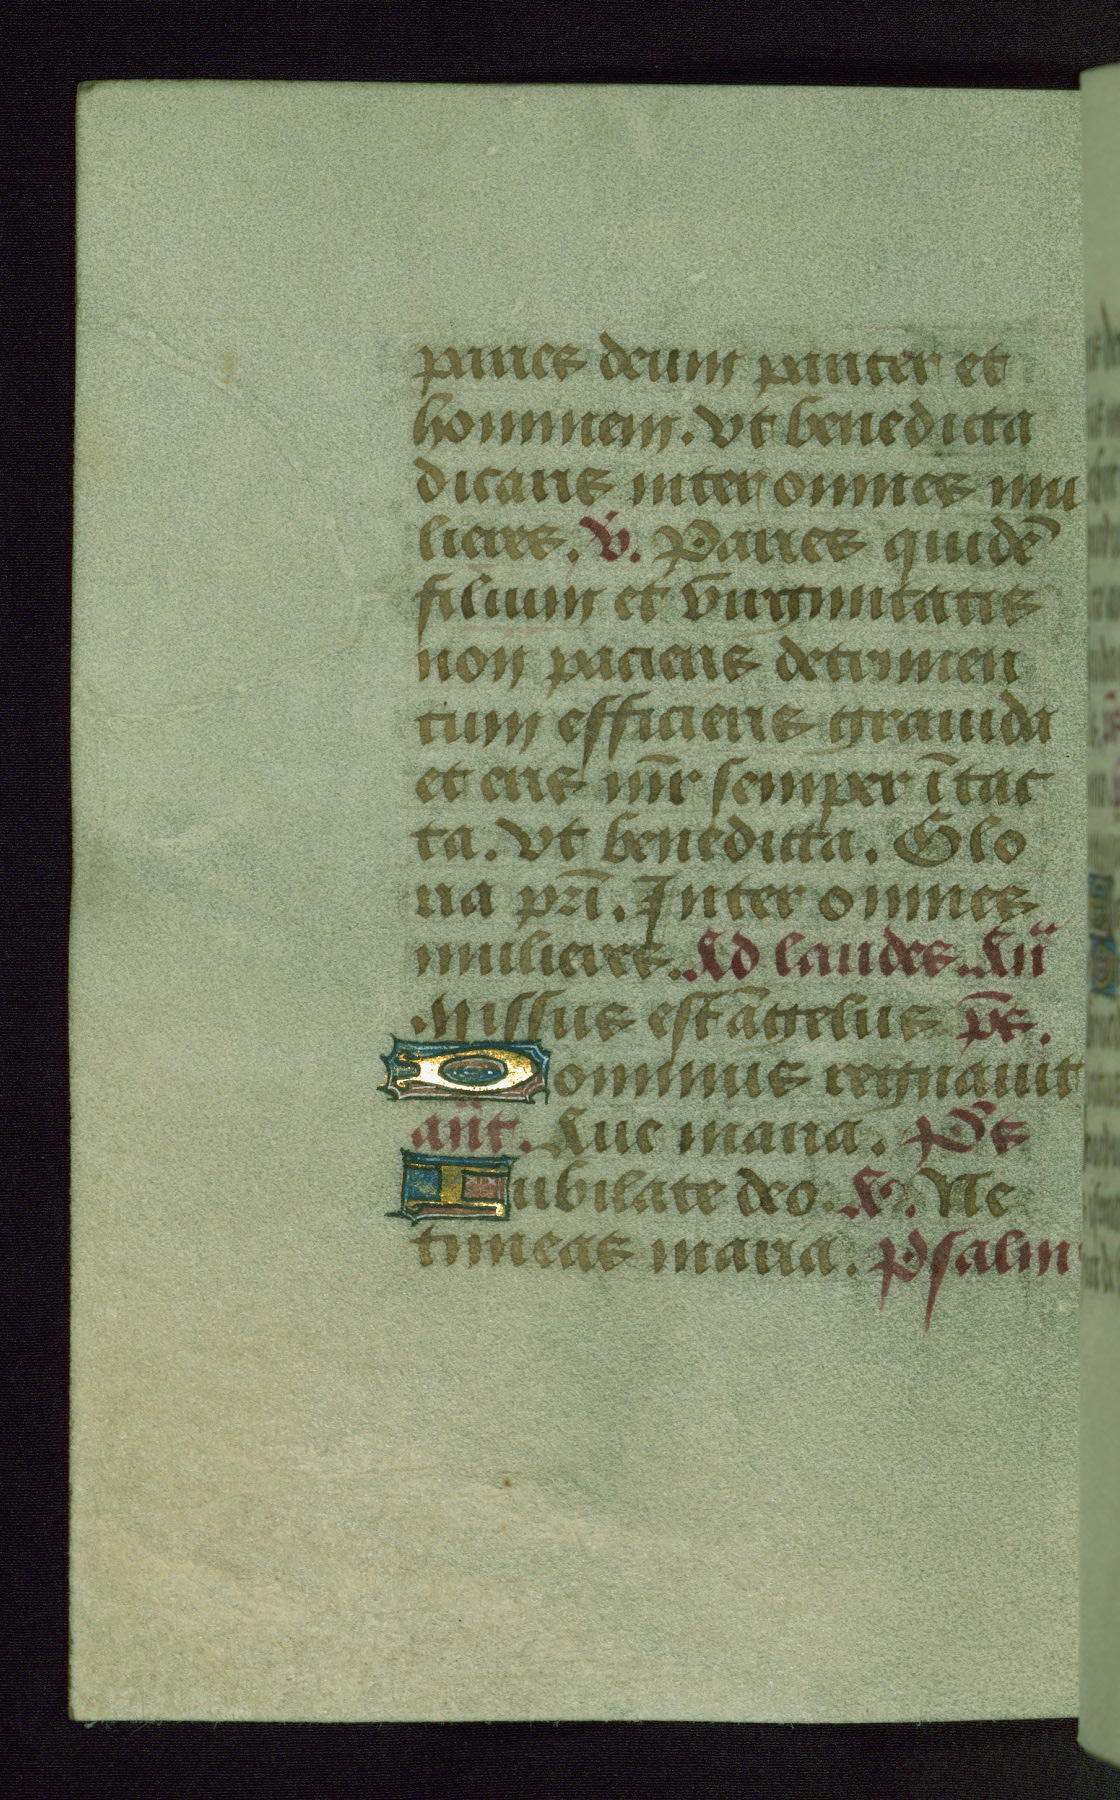 paries deum pariter et
hominem. Vt benedicta
dicaris inter omnes mu
lieres. V̄. Paries quidē
filium et virginitatis
non pacieris detrimen
tum efficieris grauida
et eris mr̄ semper ītac
ta. Vt benedicta. Glo
ria pr̄i. Inter omnes
mulieres. Ad laudes. An̄
Missus est āgelus ps̄.
Dominus regnauit
an̄t. Aue maria. Ps̄
Iubilate deo. A. Ne
timeas maria. Psalm